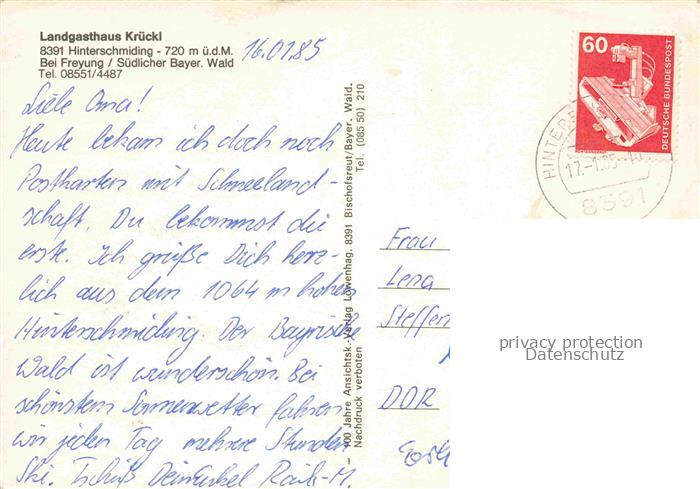 Landgasthaus Krückl
8391 Hinterschmiding - 720 m ü.d.M.
Bei Freyung / Südlicher Bayer. Wald
Tel. 08551/4487
16.01.85
Liebe Oma!
Heute bekam ich doch noch
Postkarten mit Schneeland-
schaft. Du bekommst die
erste. Ich grüße Dich herz-
lich aus dem 1064 m hohen
Hinterschmiding. Der Bayrische
Wald ist wunderschön. Bei
schönstem Sonnenwetter fahren
wir jeden Tag mehrere Stunden
Ski. Tschüß Dein Enkel
– 100 Jahre Ansichtsk.-Verlag Löwenhag, 8391 Bischofsreut/Bayer. Wald.
Nachdruck verboten
Tel. (085 50) 210
60
DEUTSCHE BUNDESPOST
17.-1.85
8391
Frau
Lena
privacy protection
Datenschutz
DDR